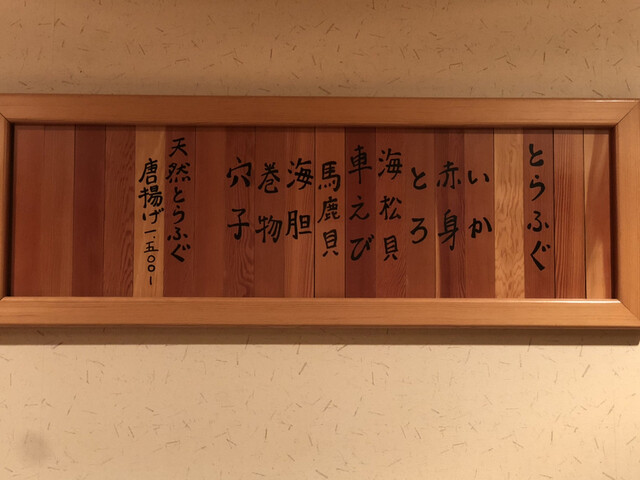 とらふぐ
いか
赤身
とろ
海松貝
車えび
馬鹿貝
海胆
巻物
穴子
天然とらふぐ
唐揚げ一、五〇〇-